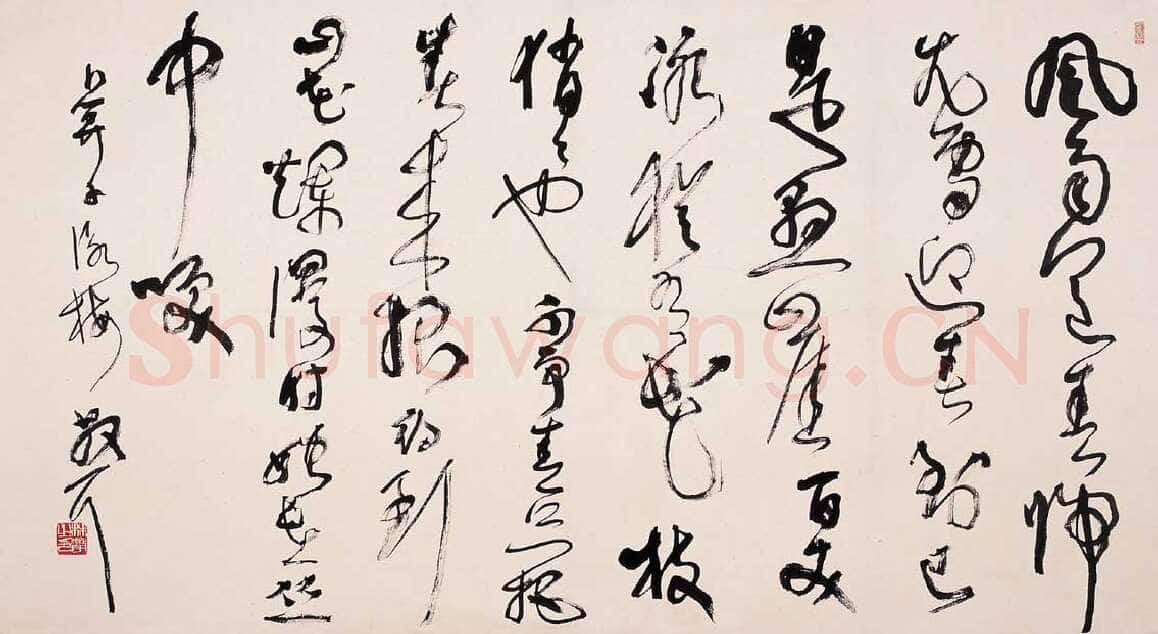 風雨送春歸
飛雪迎春到已
是懸崖百丈
冰猶有花枝
俏〻也不爭春只把
春来報待到
山花爛漫时她在丛
中咲
卜算子詠梅 散耳
Shufawang.CN